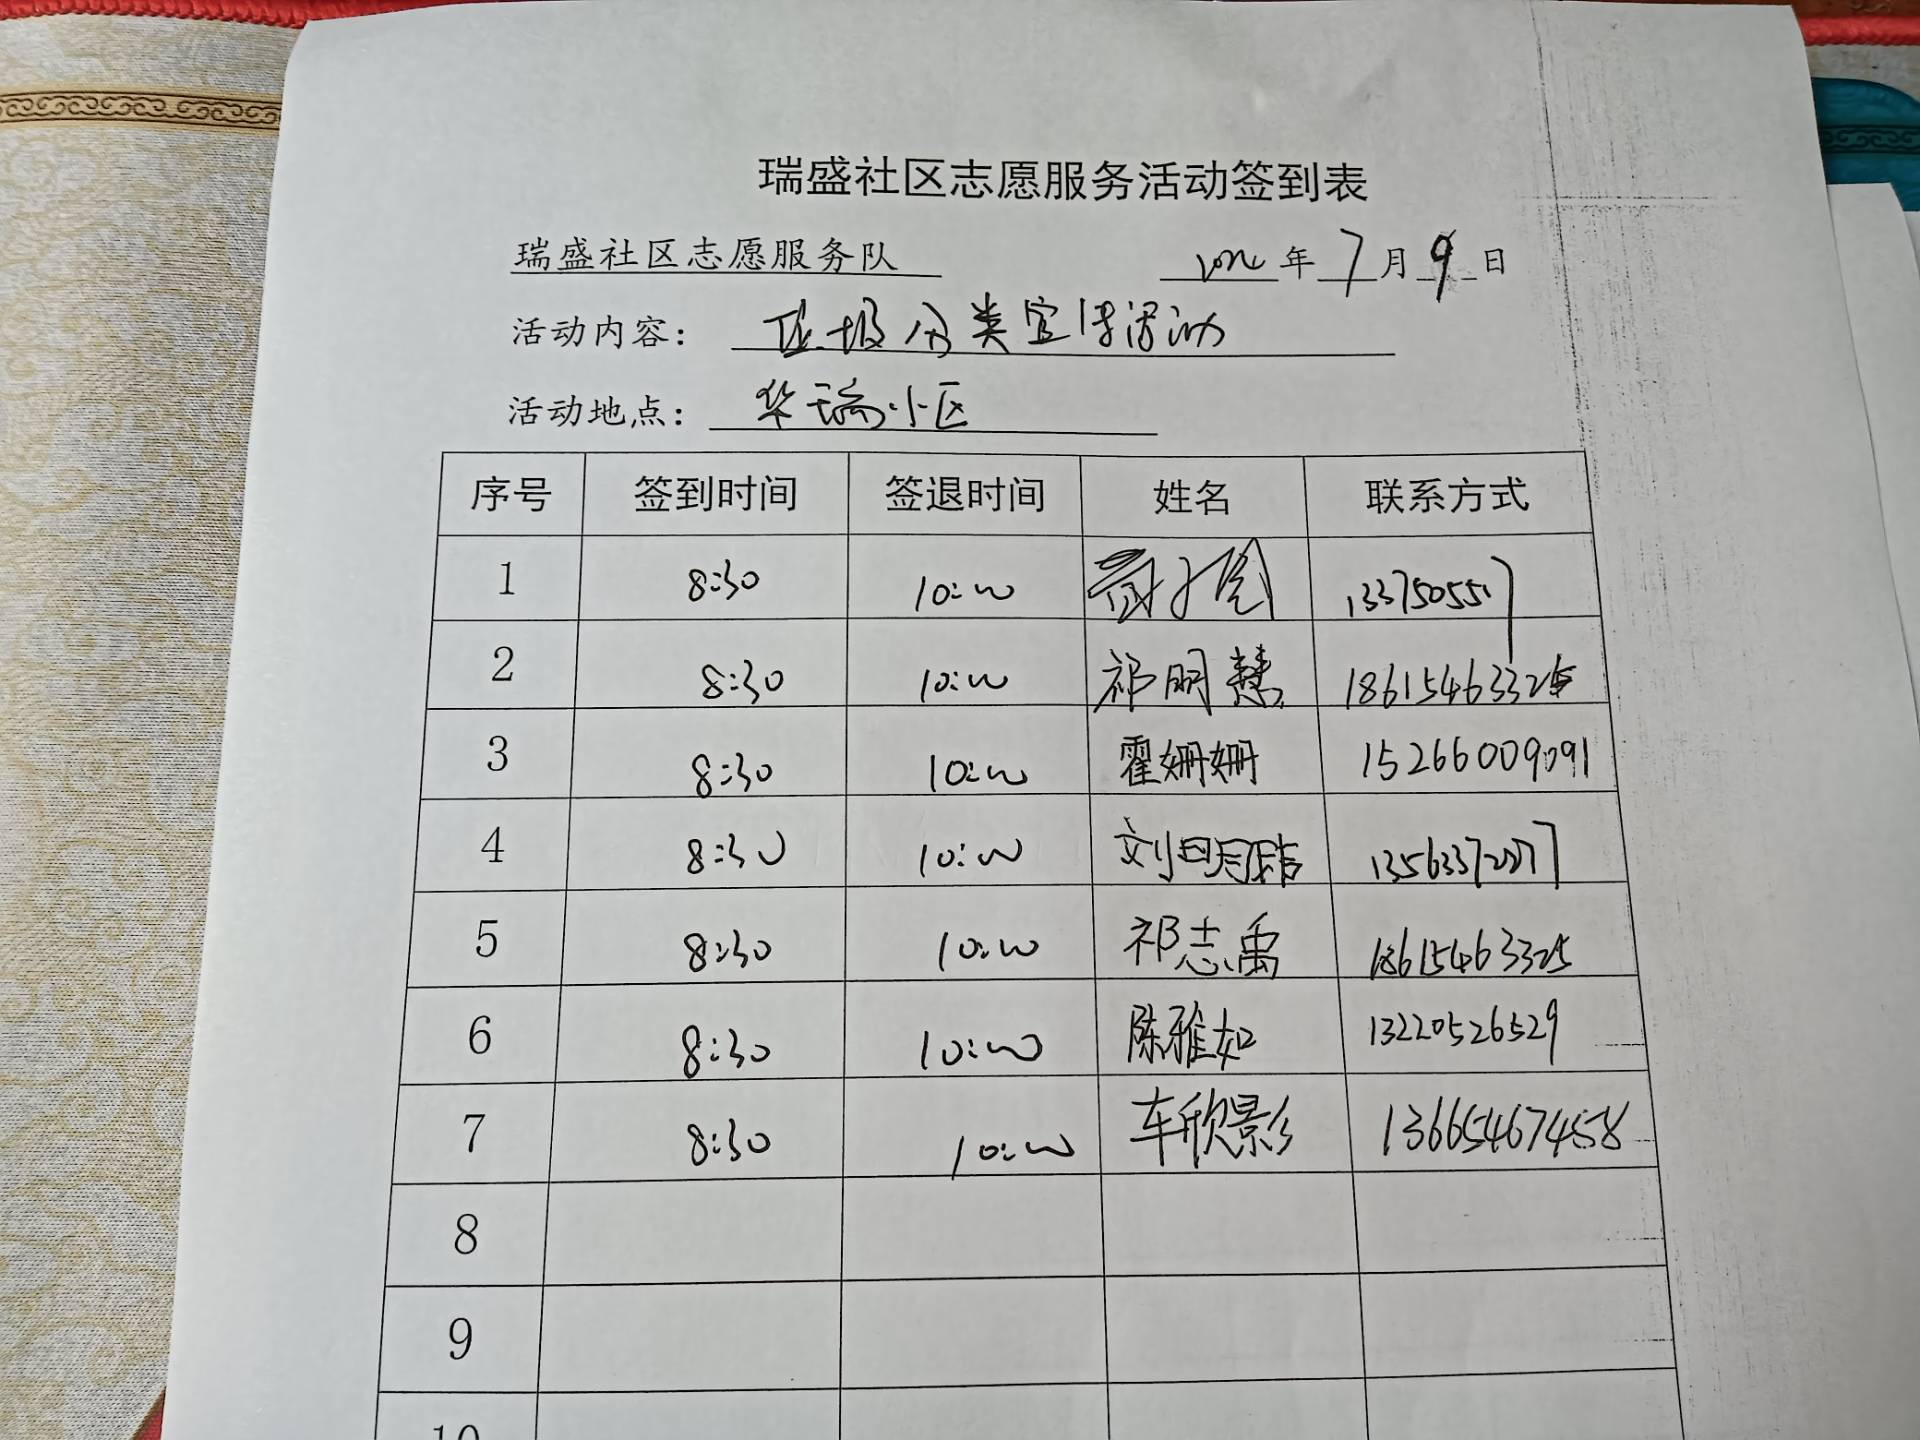 瑞盛社区志愿服务活动签到表
瑞盛社区志愿服务队 2022年7月9日
活动内容：垃圾分类宣传活动
活动地点：华瑞小区
序号 签到时间 签退时间 姓名 联系方式
1 8:30 10:00
2 8:30 10:00 祁明慧 18615463325
3 8:30 10:00 霍姗姗 15266009091
4 8:30 10:00 刘
5 8:30 10:00 祁志禹 18615463325
6 8:30 10:00 陈雅如 13220526529
7 8:30 10:00 车欣影 13665467458
8
9
10